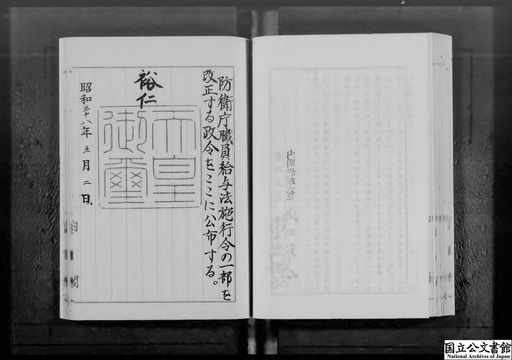 防衛庁職員給与法施行令の一部を
改正する政令をここに公布する。
裕仁
天皇
御璽
昭和三十八年五月二日
内閣
国立公文書館
National Archives of Japan